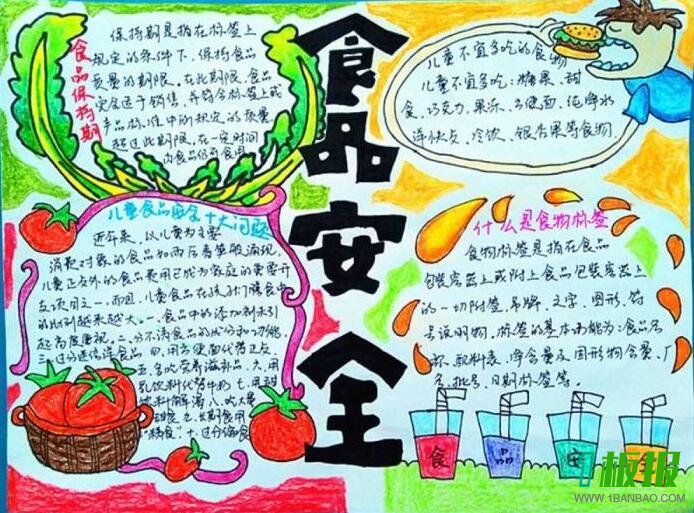 食品安全
食品保持期
保持期是指在标签上
规定的条件下、保持食品
质量的期限。在此期限、食品
完全适于销售、并符合标签上或
产品标准中所规定的质量、
超过此期限、在一定时间
内食品仍可食用
儿童不宜多吃的食物
儿童不宜多吃：糖果、甜
食、巧克力、果冻、方便面、纯净水
洋快友、冷饮、银杏果等食物.
儿童食品安全十大问题
近年来、以儿童为主要
消费对象的食品如雨后春笋般涌现、
儿童正友外的食品费用已成为家庭的重要开
支项目之一、而且、儿童食品在孩子们膳食中
的比例越来越大。一、食品中的添加剂未引
起高度重视。二、分不清食品的成分和功能、
三、过分迷信洋食品 四、用方便面代替正友
五、多吃营养滋补品、六、用
乳饮料代替牛奶 七、用甜
饮料解渴 八、吃大量
甜食 九、长期食用
“精食” 十、过分偏食
什么是食物标签
食物标签是指在食品
包装容器上或附上食品包装容器上
的一切附签、吊牌、文字、图形、符
号说明物、标签的基本功能为：食品名
称、配料表、净含量及固形物含量、厂
名、批号、日期标签等。
食 品 安 全
板报
WWW.1BANBAO.COM